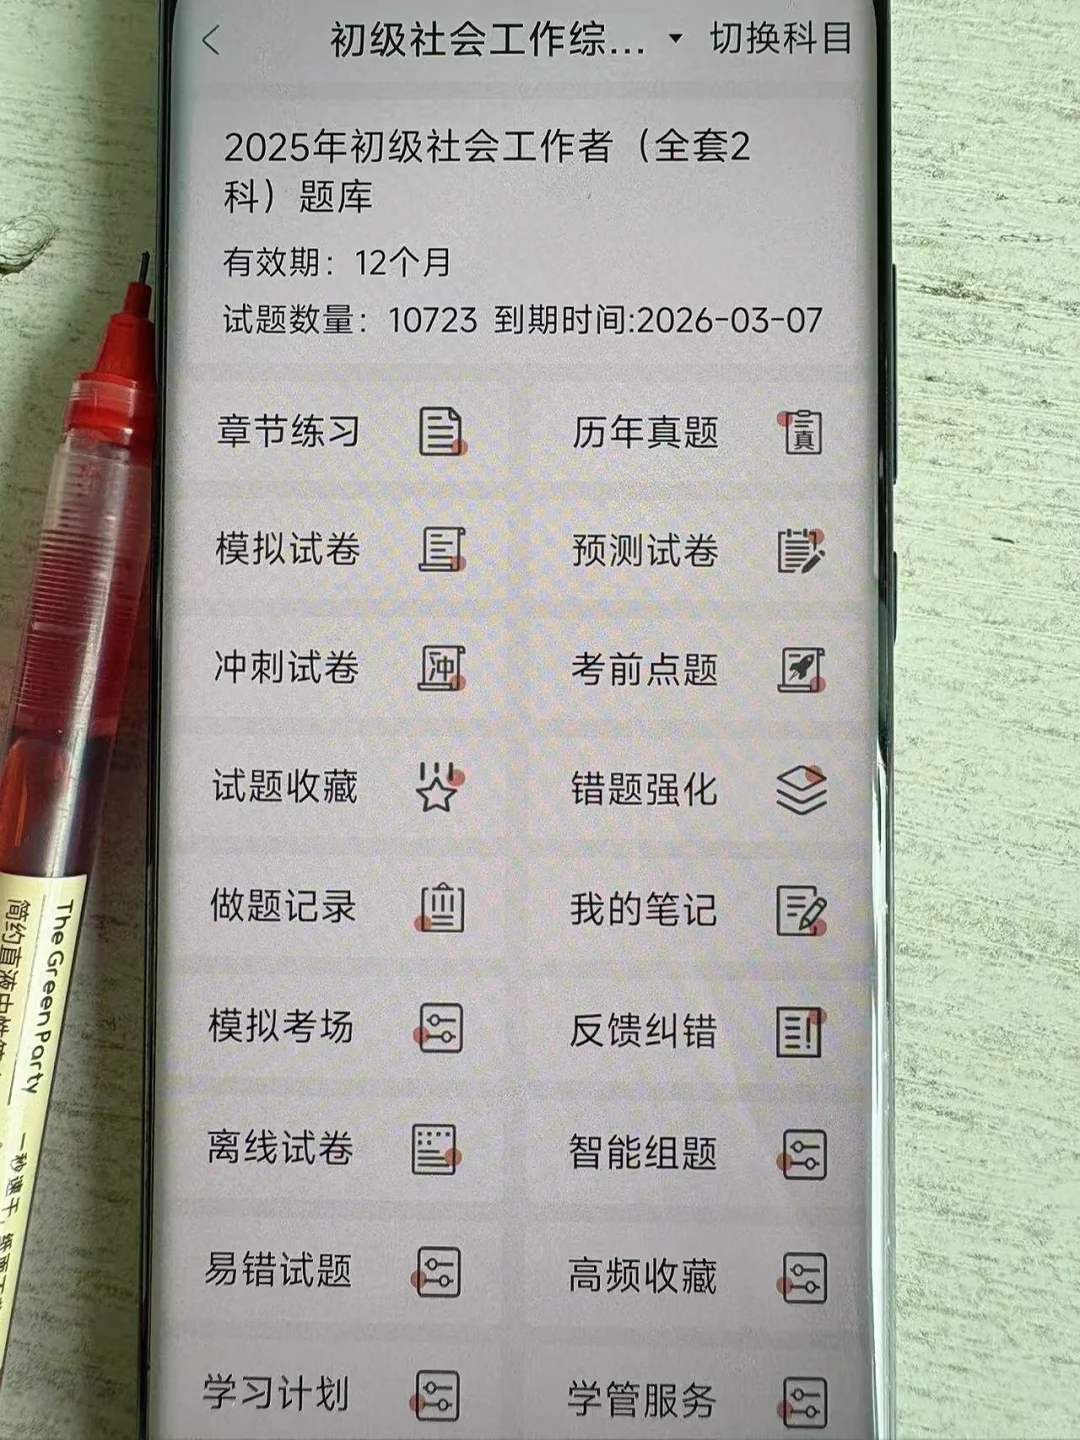 初级社会工作综... 切换科目
2025年初级社会工作者（全套2
科）题库
有效期：12个月
试题数量：10723 到期时间:2026-03-07
章节练习 历年真题
真
模拟试卷 预测试卷
冲刺试卷 冲 考前点题
试题收藏 错题强化
做题记录 我的笔记
模拟考场 反馈纠错
离线试卷 智能组题
易错试题 高频收藏
学习计划 学管服务
The Green Party